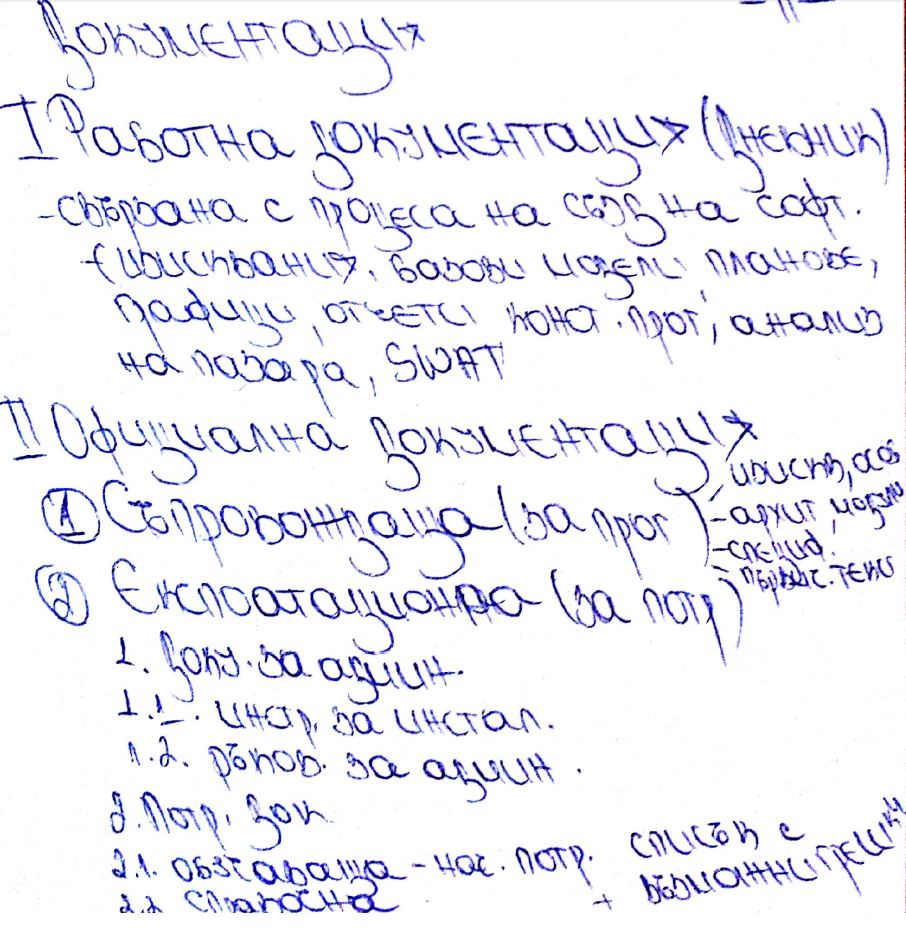 -11-
Документация
I Работна документация (Дневник)
- свързана с процеса на създ на софт.
- (изисквания, базови модели, планове,
графици, отчети, конст. прог, анализ
на пазара, SWAT
II Официална документация
① Съпровождаща (за прог)
- изискв, осн
- архит, модели
- специф.
- първис. текс
② Експлоатационна (за потр)
1. Доку. за админ.
1.1. инстр. за инстал.
1.2. ръков. за админ.
2. Потр. док
2.1. обучаваща - нач. потр.
2.2 справочна
+ списък с
възможни грешки